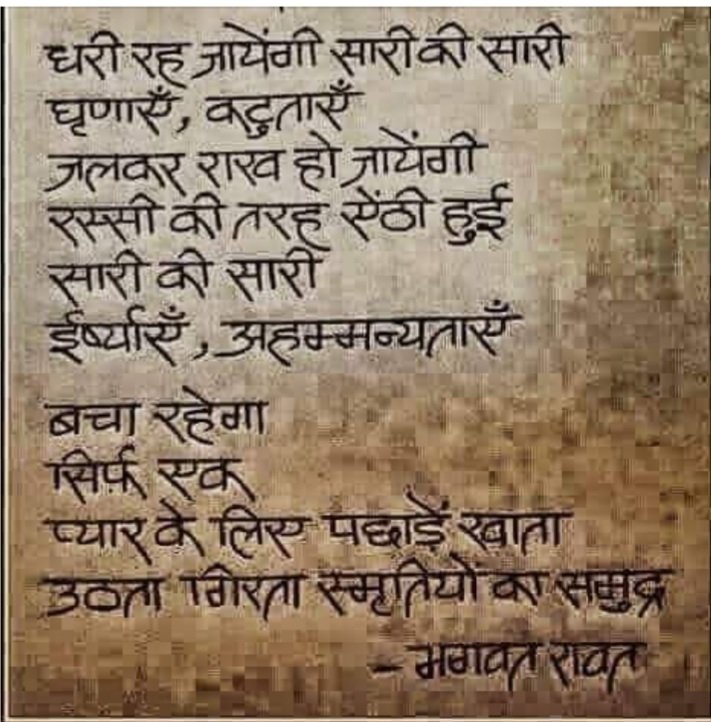 धरी रह जायेंगी सारी की सारी
घृणाएँ, कटुताएँ
जलकर राख हो जायेंगी
रस्सी की तरह ऐंठी हुई
सारी की सारी
ईर्ष्याएँ, अहम्मन्यताएँ
बचा रहेगा
सिर्फ़ एक
प्यार के लिए पछाड़ें खाता
उठता गिरता स्मृतियों का समुद्र
- भगवत रावत